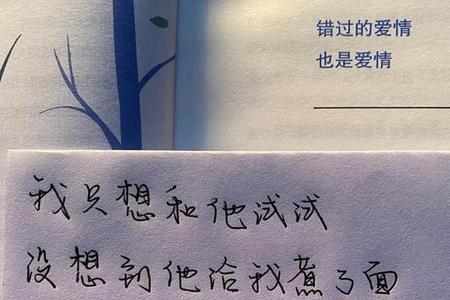 错过的爱情
也是爱情
我只想和他试试
没想到他给我煮了面